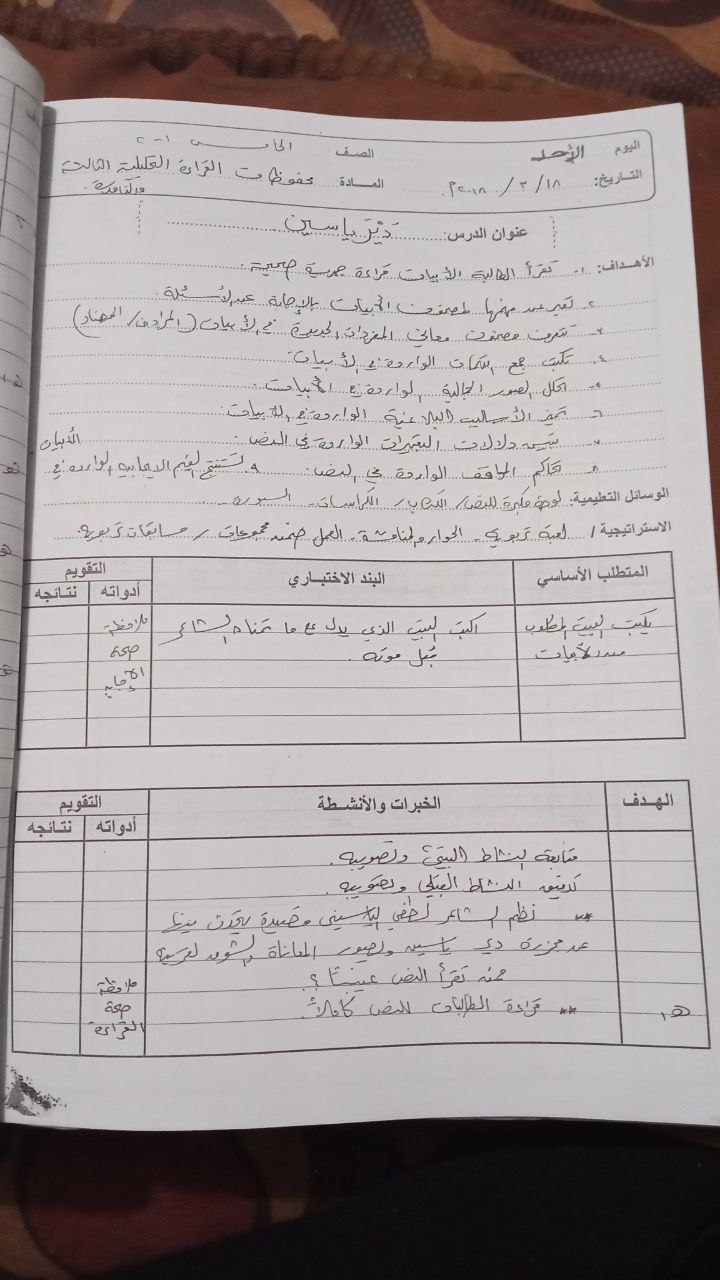 اليوم الأحد الصف الخامس ١-٢
التاريخ: ١٨/ ٣ / ٢٠١٨م. المادة: محفوظات القراءة التكميلية الثالثة
والنافذة.
عنوان الدرس: دَيْرُ ياسين
الأهداف: ١- تقرأ الطالبة الأبيات قراءة جهرية صحيحة.
٢- تعبر عن فهمها لمضمون الأبيات بالإجابة عن الأسئلة.
٣- تتعرف مضمون ومعاني المفردات الجديدة في الأبيات (المرادف/ المضاد)
٤- تكتب جمع الكلمات الواردة في الأبيات
٥- تحلل الصور الجمالية الواردة في الأبيات.
٦- تميز الأساليب البلاغية الواردة في الأبيات.
٧- تبين دلالات التعبيرات الواردة في النص.
٨- تحاكم المواقف الواردة في النص. ٩- تستنتج القيم الايجابية الواردة في الأبيات
الوسائل التعليمية: لوحة مكبرة للنص/ الكتاب/ الكراسات - السبورة
الاستراتيجية/ لعبة تربوية - الحوار والمناقشة - العمل ضمن مجموعات / مسابقات تربوية
المتطلب الأساسي البند الاختباري التقويم
أدواته نتائجه
يكتب البيت المطلوب اكتب البيت الذي يدل على ما تمناه الشاعر ملاحظة
من الأبيات قبل موته. صحة
الإجابة
الهدف الخبرات والأنشطة التقويم
أدواته نتائجه
متابعة النشاط البيتي وتصويبه.
تدقيق النشاط القبلي وتصويبه.
** نظم الشاعر لطفي الياسيني قصيدة يتحدث فيها
عن مجزرة دير ياسين وتصور المعاناة والشوق لقريته
فمن تقرأ النص غيبًا؟ ملاحظة
هـ١ ** قراءة الطالبات للنص كاملاً. صحة
القراءة